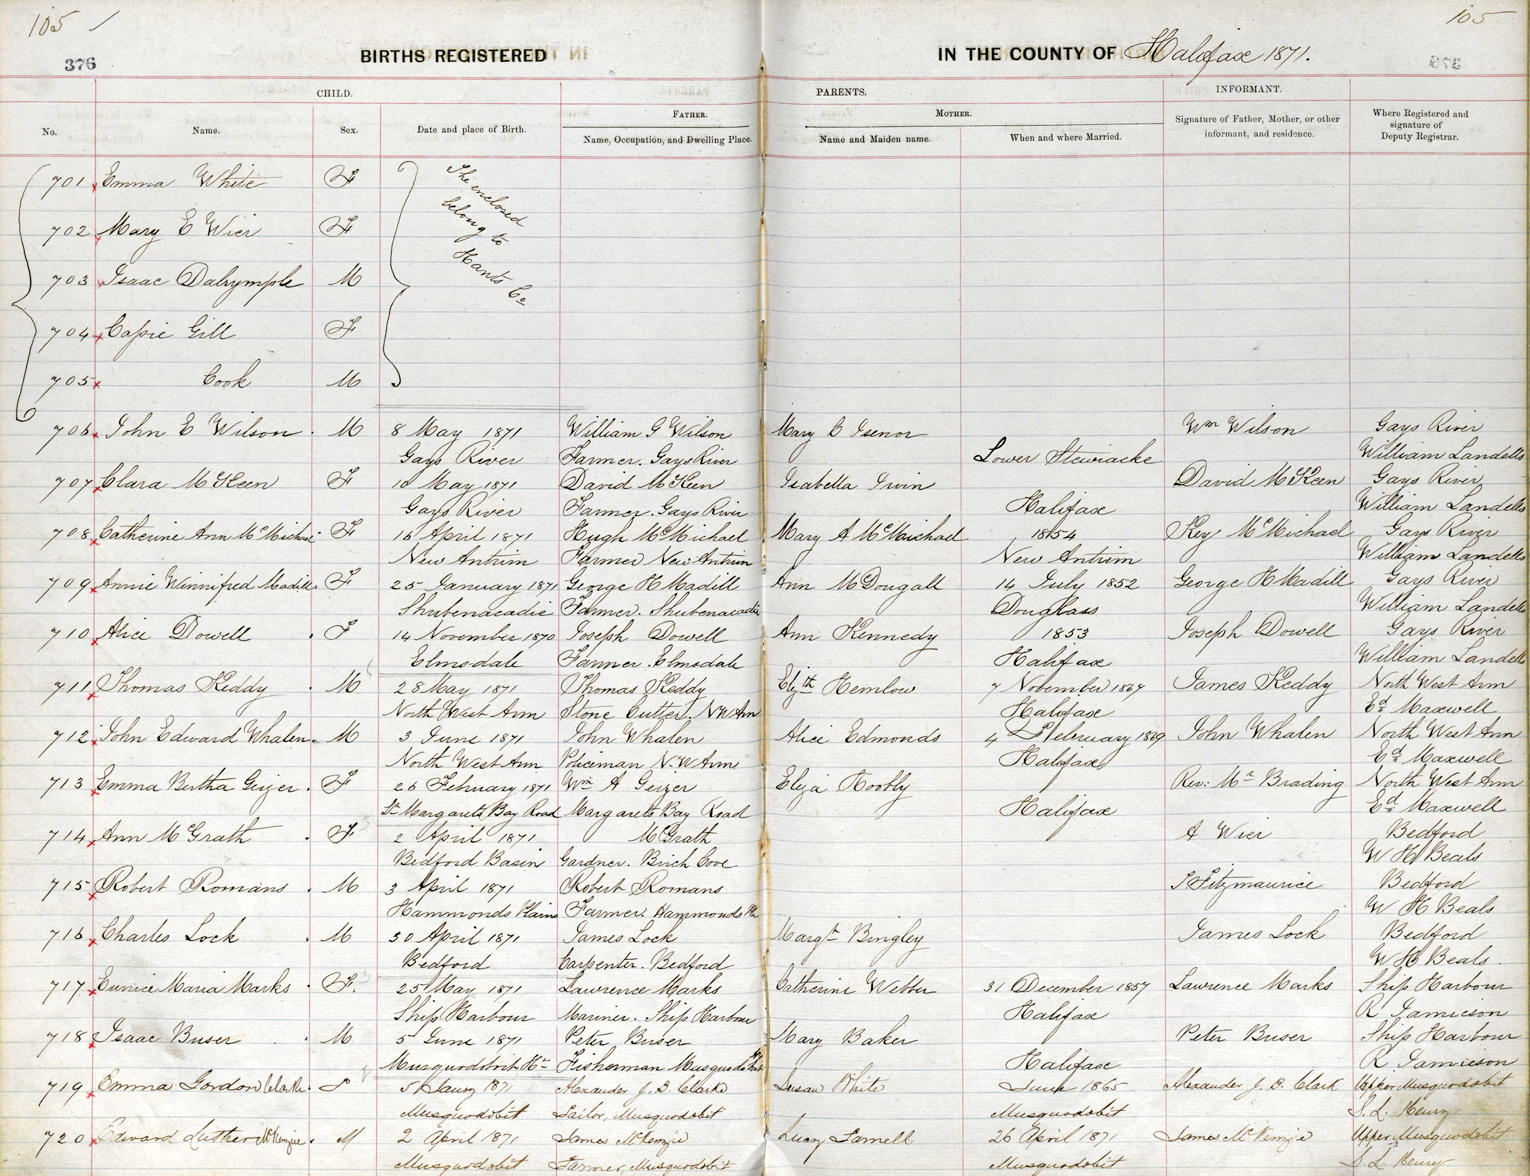 105
105
376
BIRTHS REGISTERED
IN THE COUNTY OF Halifax 1871.
CHILD.
PARENTS.
INFORMANT.
No.
Name.
Sex.
Date and place of Birth.
FATHER.
Name, Occupation, and Dwelling Place.
MOTHER.
Name and Maiden name.
When and where Married.
Signature of Father, Mother, or other
informant, and residence.
Where Registered and
signature of
Deputy Registrar.
The enclosed
belong to
Hants Co
701 Emma White F
702 Mary E Wier F
703 Isaac Dalrymple M
704 Cassie Gill F
705 Cook M
706 John E Wilson M 8 May 1871 William G Wilson Mary B Isenor Wm Wilson Gays River
Gays River Farmer. Gays River Lower Stewiacke William Landells
707 Clara McKeen F 10 May 1871 David McKeen Isabella Irvin David McKeen Gays River
Gays River Farmer. Gays River Halifax William Landells
708 Catherine Ann McMichael F 16 April 1871 Hugh McMichael Mary A McMichael 1854 McMichael Gays River
New Antrim Farmer New Antrim New Antrim William Landells
709 Annie Winnifred Madill F 25 January 1871 George H Madill Ann McDougall 14 July 1852 George H Madill Gays River
Shubenacadie Farmer. Shubenacadie Douglass William Landells
710 Alice Dowell F 14 November 1870 Joseph Dowell Ann Kennedy 1853 Joseph Dowell Gays River
Elmsdale Farmer. Elmsdale Halifax William Landells
711 Thomas Keddy M 28 May 1871 Thomas Keddy Elizth Hemlow 7 November 1867 James Keddy North West Arm
North West Arm Stone Cutter. N W Arm Halifax Ed Maxwell
712 John Edward Whalen M 3 June 1871 John Whalen Alice Edmonds 4 February 1869 John Whalen North West Arm
North West Arm Policeman N. W Arm Halifax Ed Maxwell
713 Emma Bertha Geizer F 26 February 1871 Wm A Geizer Eliza Rev: Mr Brading North West Arm
St Margarets Bay Road Margarets Bay Road Halifax Ed Maxwell
714 Ann McGrath F 2 April 1871 McGrath A Wier Bedford
Bedford Basin Gardner. Birch Cove W H Beals
715 Robert Romans M 3 April 1871 Robert Romans Fitzmaurice Bedford
Hammonds Plains Farmer. Hammonds Pln W H Beals
716 Charles Lock M 30 April 1871 James Lock Margt Bingley James Lock Bedford
Bedford Carpenter. Bedford W H Beals.
717 Eunice Maria Marks F. 25 May 1871 Lawrence Marks Catherine Webber 31 December 1857 Lawrence Marks Ship Harbour
Ship Harbour Mariner. Ship Harbour Halifax R Jamieson
718 Isaac Buser M 5 June 1871 Peter Buser Mary Baker Peter Buser Ship Harbour
Musquodoboit Hr Fisherman Musquodoboit Halifax R. Jamieson
719 Emma Gordon Clark F 5 Jany 1871 Alexander J. B. Clarke Susan White June 1865 Alexander J. B. Clark Upper Musquodobit
Musquodobit Tailor, Musquodobit Musquodobit S. L. Henry
720 Edward Luther McKenzie M 2 April 1871 James McKenzie Lucy 26 April 1871 James McKenzie Upper Musquodobit
Musquodobit Farmer, Musquodobit Musquodobit S. L. Henry